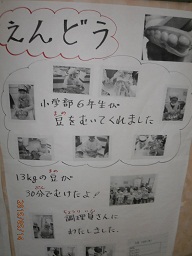 えんどう
小学部6年生が
豆をむいてくれました
まめ
13kgの豆が
まめ
30分でむけたよ!
ちょうりいん
調理員さんに
わたしました。